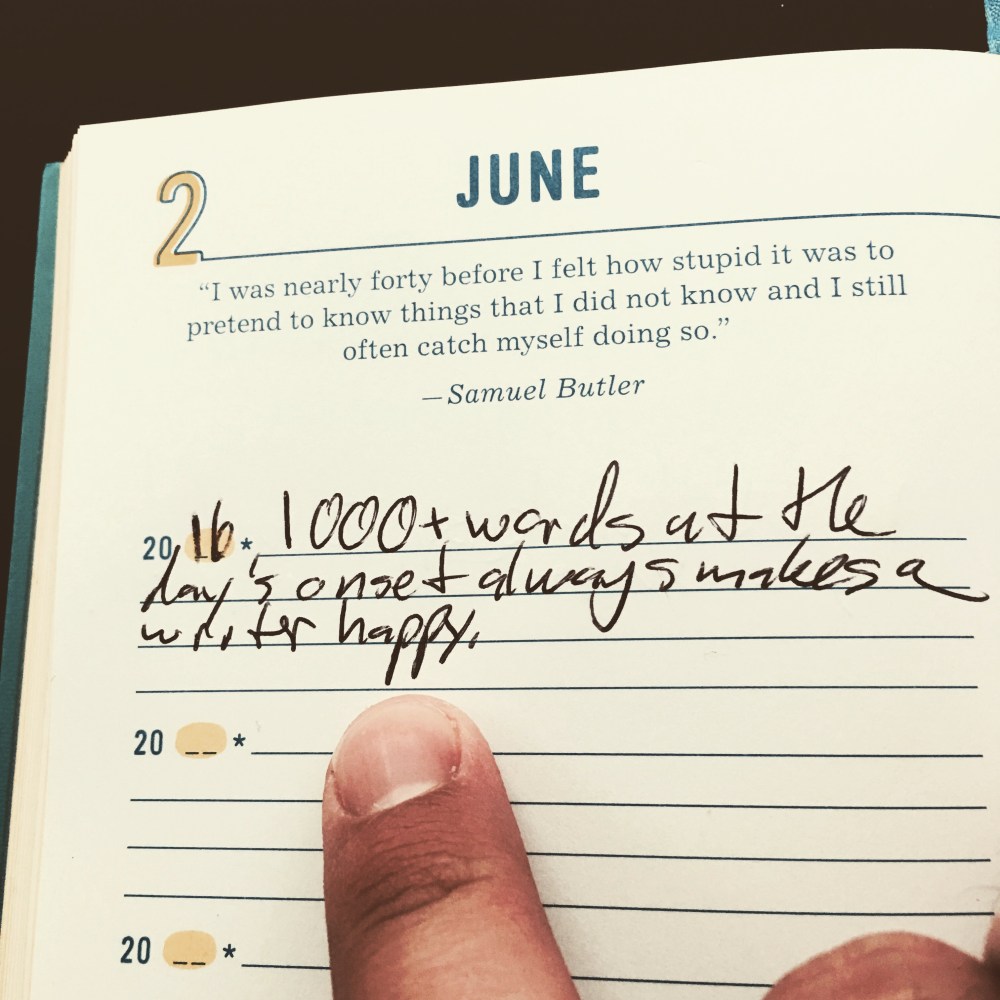 2 JUNE
“I was nearly forty before I felt how stupid it was to
pretend to know things that I did not know and I still
often catch myself doing so.”
—Samuel Butler
2016 * 1000+ words at the
day's onset always makes a
writer happy.
20 __ *
20 __ *